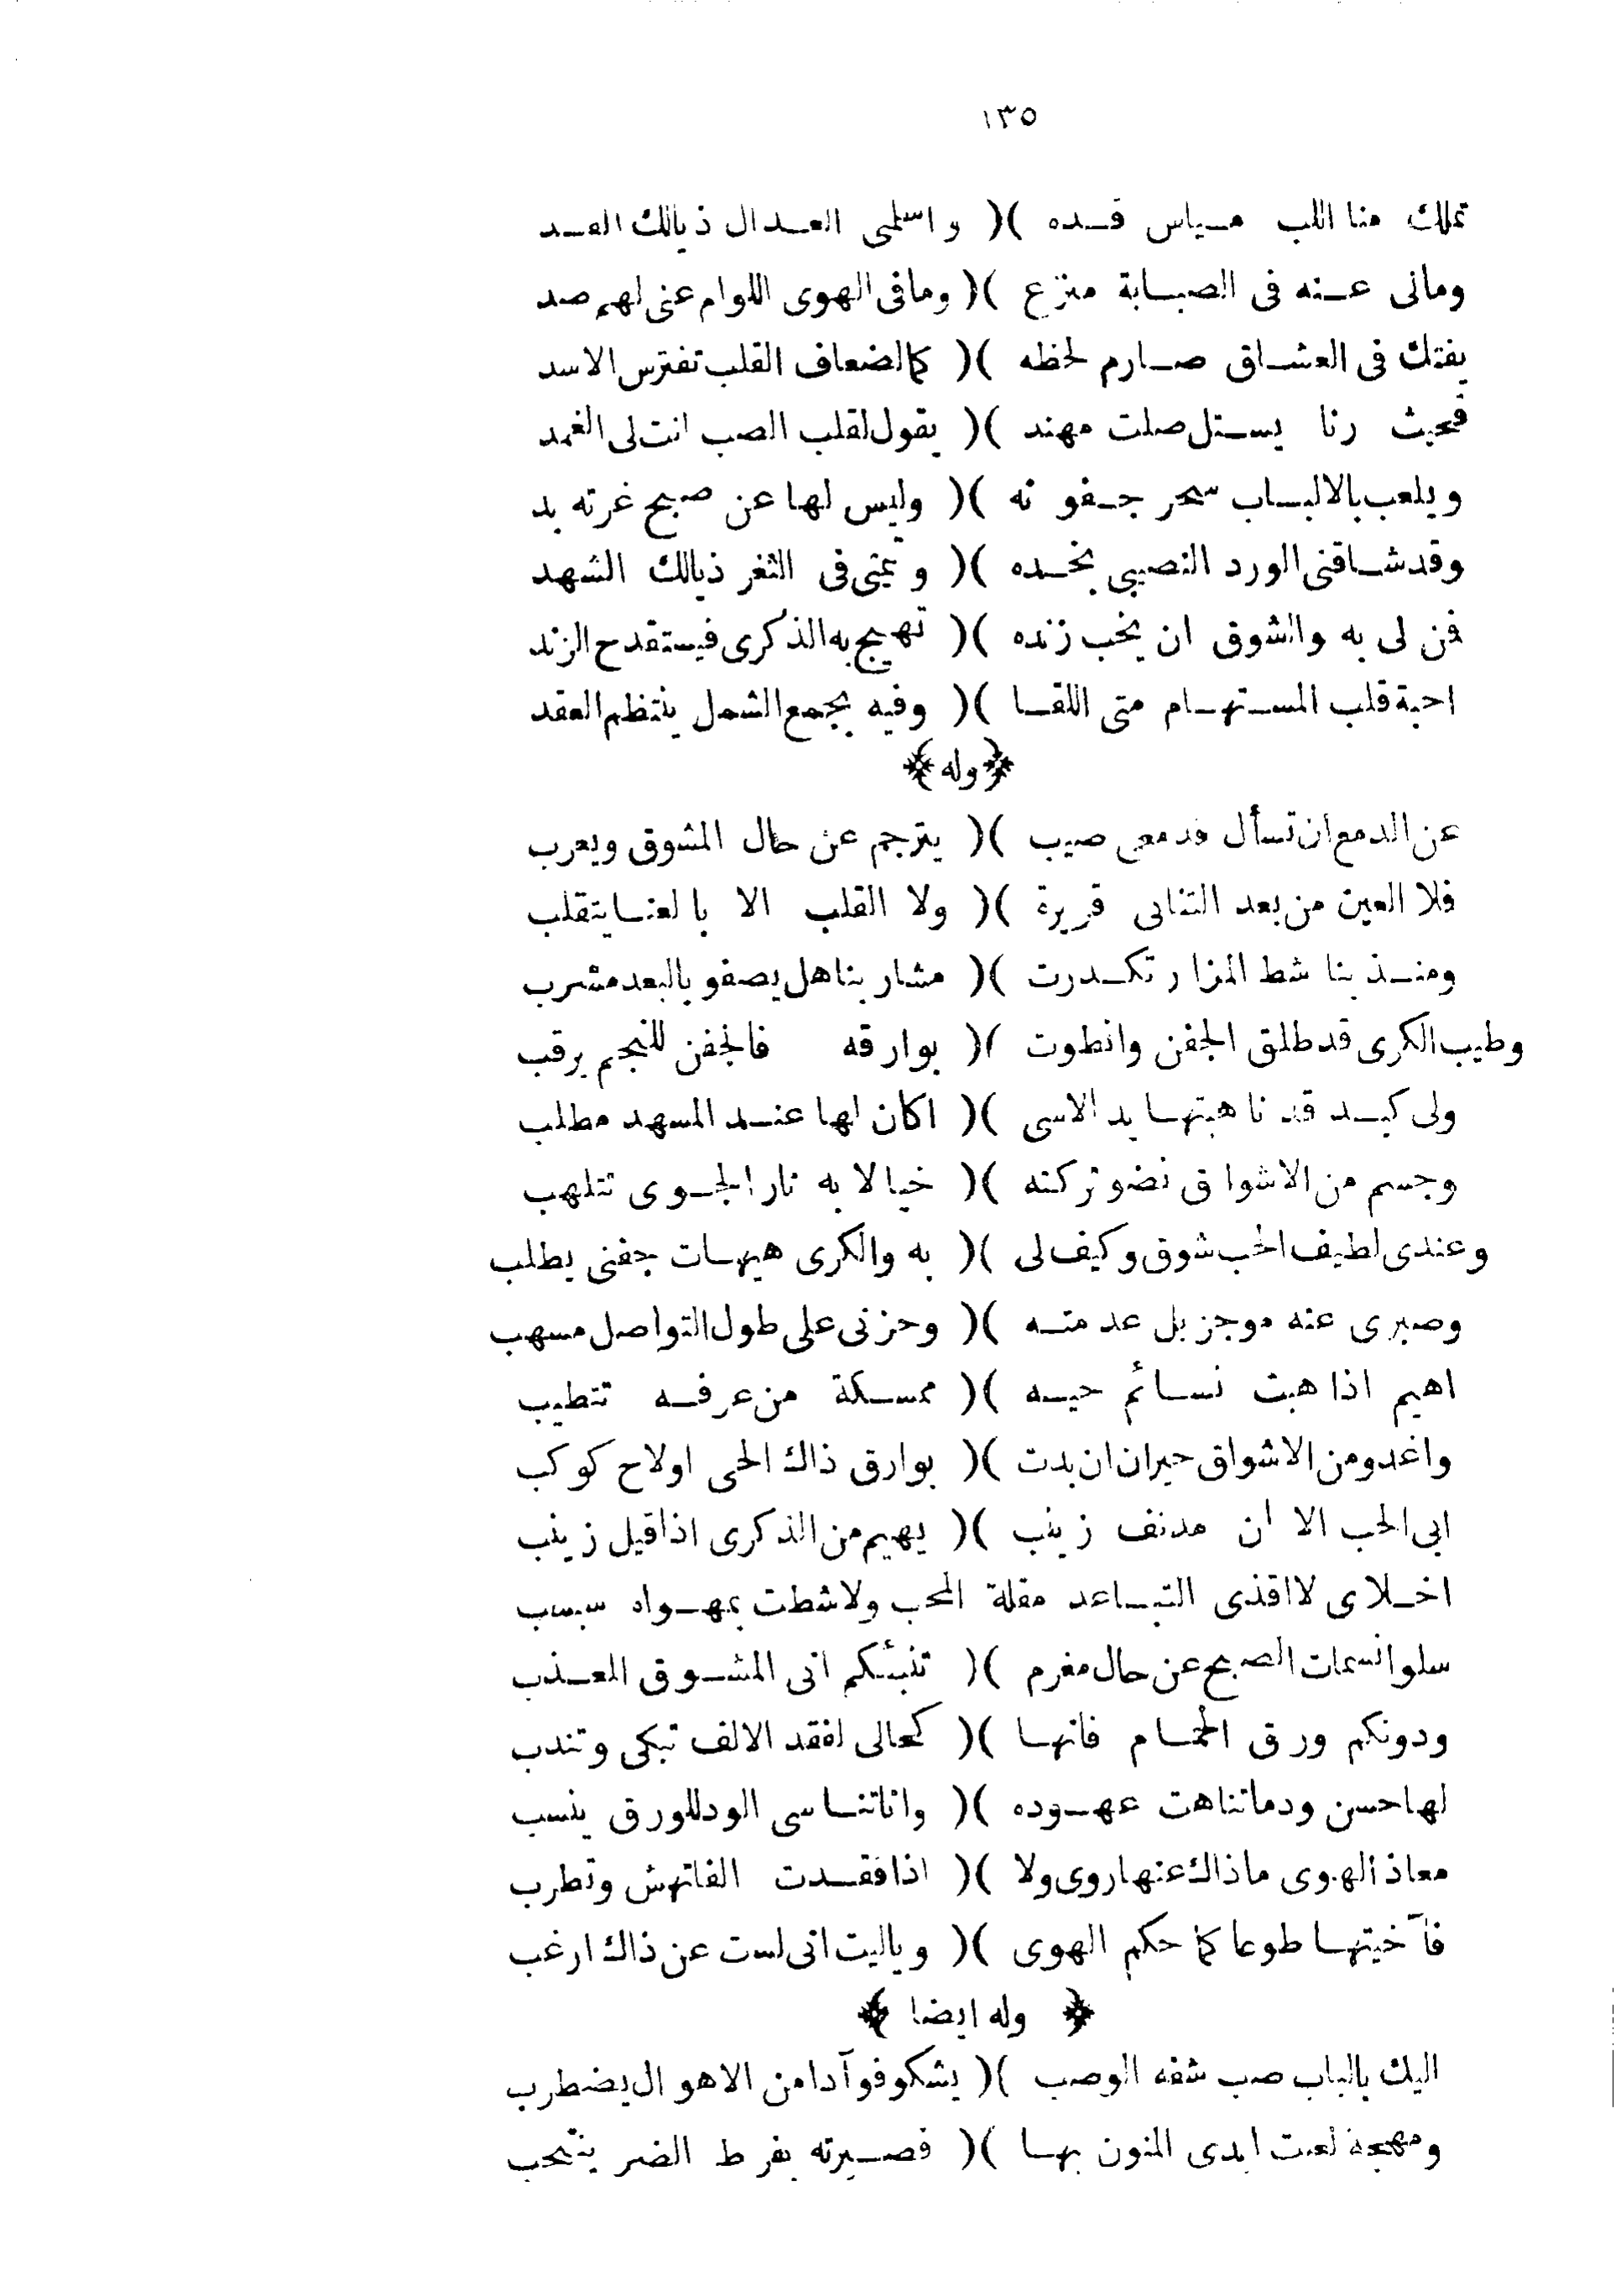 ١٣٥
تملك منا اللب مياس قده )( واسلمى العدال ذيالك القد
ومانى عنه فى الصبابة منزع )( ومافى الهوى اللوام عنى لهم صد
يفتك فى العشاق صارم لحظه )( كمالضعاف القلب تفترس الاسد
فحيث رنا يستل صلت مهند )( يقول لقلب الصب انت لى الغمد
ويلعب بالالباب سحر جفونه )( وليس لها عن صبح غرته بد
وقد شاقنى الورد النصيبى بخده )( و يمتى فى الثغر ذيالك الشهد
فمن لى به والشوق ان يخب زنده )( تهيج به الذكرى فيستقدح الزند
احبة قلب المستهام متى اللقا )( وفيه بجمع الشمل ينتظم العقد
﴿وله﴾
عن الدمع ان تسأل فدمعى صيب )( يترجم عن حال المشوق ويعرب
فلا العين من بعد التنائى قريرة )( ولا القلب الا بالعنا يتقلب
ومنذ بنا شط المزار تكدرت )( مشاربنا هل يصفو بالبعد مشرب
وطيب الكرى قد طلق الجفن وانطوت )( بوارقه فالجفن للنجم يرقب
ولى كبد قد ناهبتها يد الاسى )( اكان لها عند المسهد مطلب
وجسم من الاشواق نضو تركته )( خيالا به نار الجوى تتلهب
وعندى لطيف الحب شوق وكيف لى )( به والكرى هيهات جفنى يطلب
وصبرى عنه موجز بل عدمته )( وحزنى على طول التواصل مسهب
اهيم اذا هبت نسائم حيه )( ممسكة من عرفه تتطيب
واغدو من الاشواق حيران ان بدت )( بوارق ذاك الحى اولاح كوكب
ابى الحب الا ان مدنف زينب )( يهيم من الذكرى اذا قيل زينب
اخلاى لا اقذى التباعد مقلة المحب ولا شطت بمهواه سبسب
سلوا نسمات الصبح عن حال مغرم )( تنبئكم انى المشوق المعذب
ودونكم ورق الحمام فانها )( كحالى لفقد الالف تبكى وتندب
لها حسن ود ما تناهت عهوده )( وانا تناسى الود للورق ينسب
معاذ الهوى ماذاك عنها روى ولا )( اذا فقدت الفا تهش وتطرب
فآخيتها طوعا كما حكم الهوى )( وياليت انى لست عن ذاك ارغب
﴿ وله ايضا ﴾
اليك بالباب صب شفه الوصب )( يشكو فوآدا من الاهوال يضطرب
ومهجة لعبت ايدى المنون بها )( فصيرته بفرط الضر ينتحب